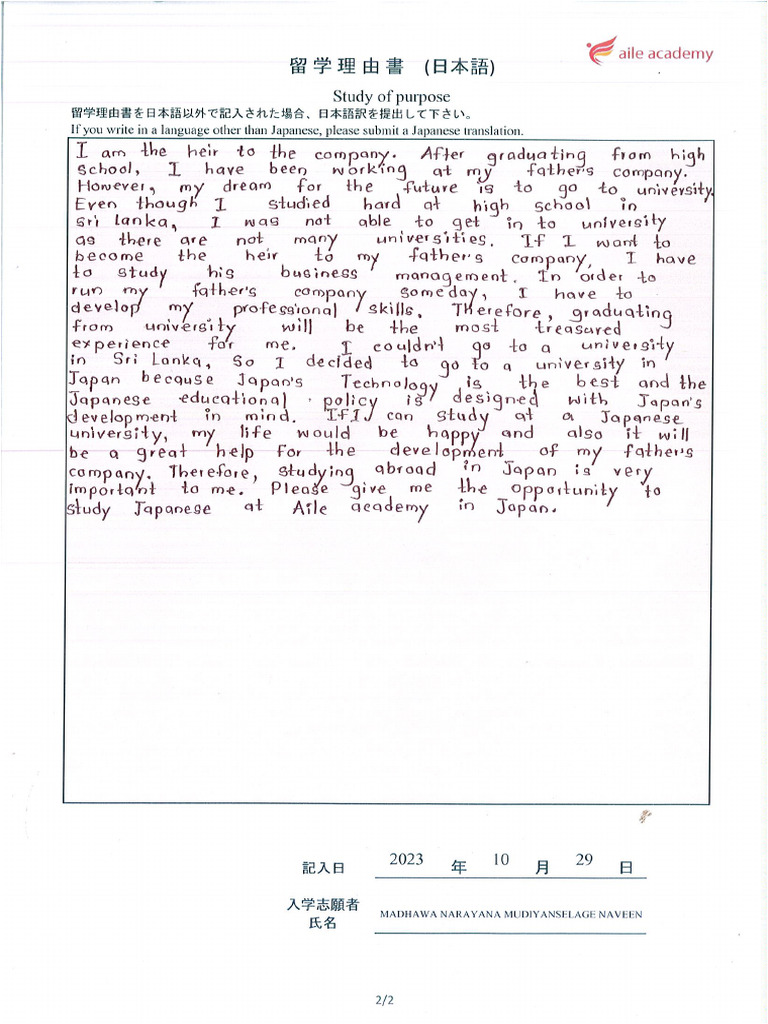 aile academy
留学理由書 (日本語)
Study of purpose
留学理由書を日本語以外で記入された場合、日本語訳を提出して下さい。
If you write in a language other than Japanese, please submit a Japanese translation.
I am the heir to the company. After graduating from high
school, I have been working at my father's company.
However, my dream for the future is to go to university.
Even though I studied hard at high school in
Sri lanka, I was not able to get in to university
as there are not many universities. If I want to
become the heir to my father's company, I have
to study his business management. In order to
run my father's company someday, I have to
develop my professional skills. Therefore, graduating
from university will be the most treasured
experience for me. I couldn't go to a university
in Sri Lanka, So I decided to go to a university in
Japan because Japan's Technology is the best and the
Japanese educational policy is designed with Japan's
development in mind. If I can study at a Japanese
university, my life would be happy and also it will
be a great help for the development of my father's
company. Therefore, studying abroad in Japan is very
important to me. Please give me the opportunity to
study Japanese at Aile academy in Japan.
記入日 2023 年 10 月 29 日
入学志願者
氏名 MADHAWA NARAYANA MUDIYANSELAGE NAVEEN
2/2